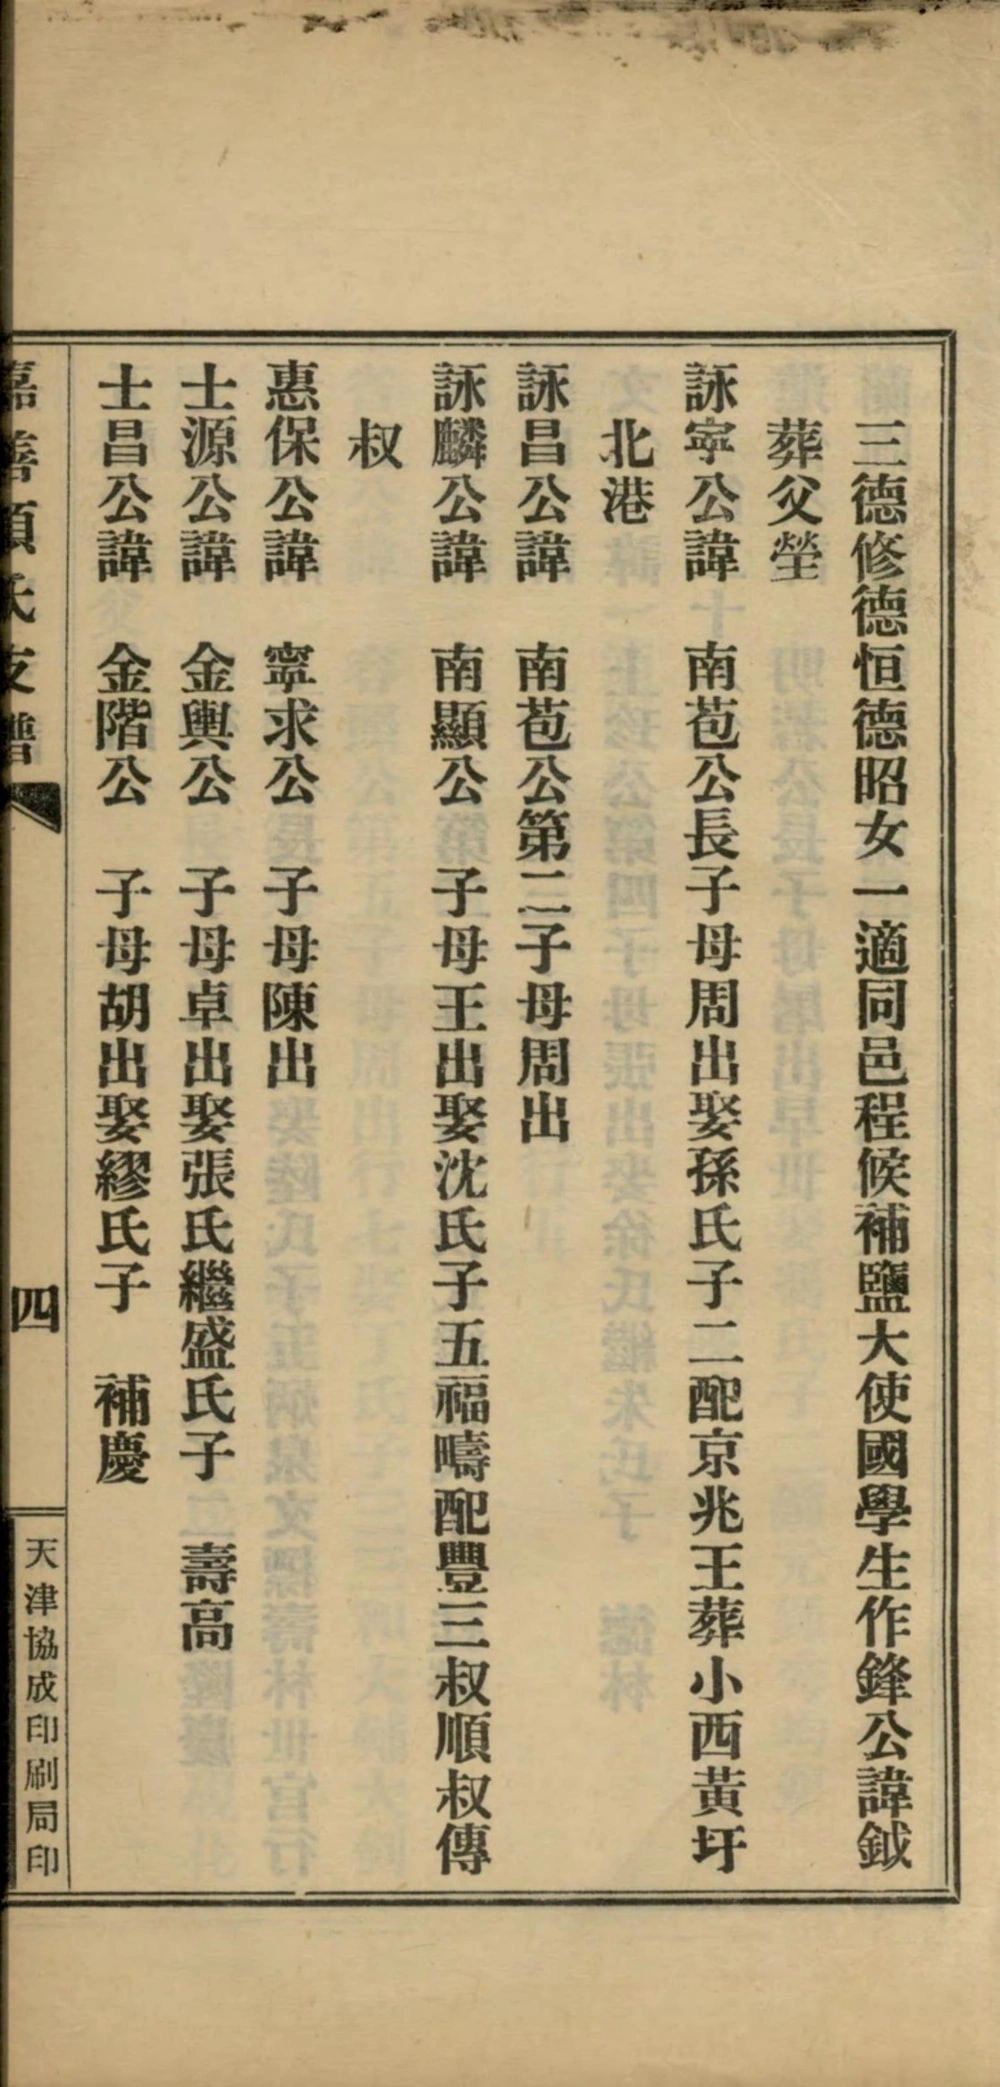 三德修德恒德昭女一適同邑程候補鹽大使國學生作鋒公諱鉞
葬父塋
詠寧公諱　南苞公長子母周出娶孫氏子二配京兆王葬小西黃圩
北港
詠昌公諱　南苞公第二子母周出
詠麟公諱　南顯公　子母王出娶沈氏子五福疇配豐三叔順叔傳
叔
惠保公諱　寧求公　子母陳出
士源公諱　金輿公　子母卓出娶張氏繼盛氏子　壽高
士昌公諱　金階公　子母胡出娶繆氏子　補慶
嘉善項氏支譜
四
天津協成印刷局印